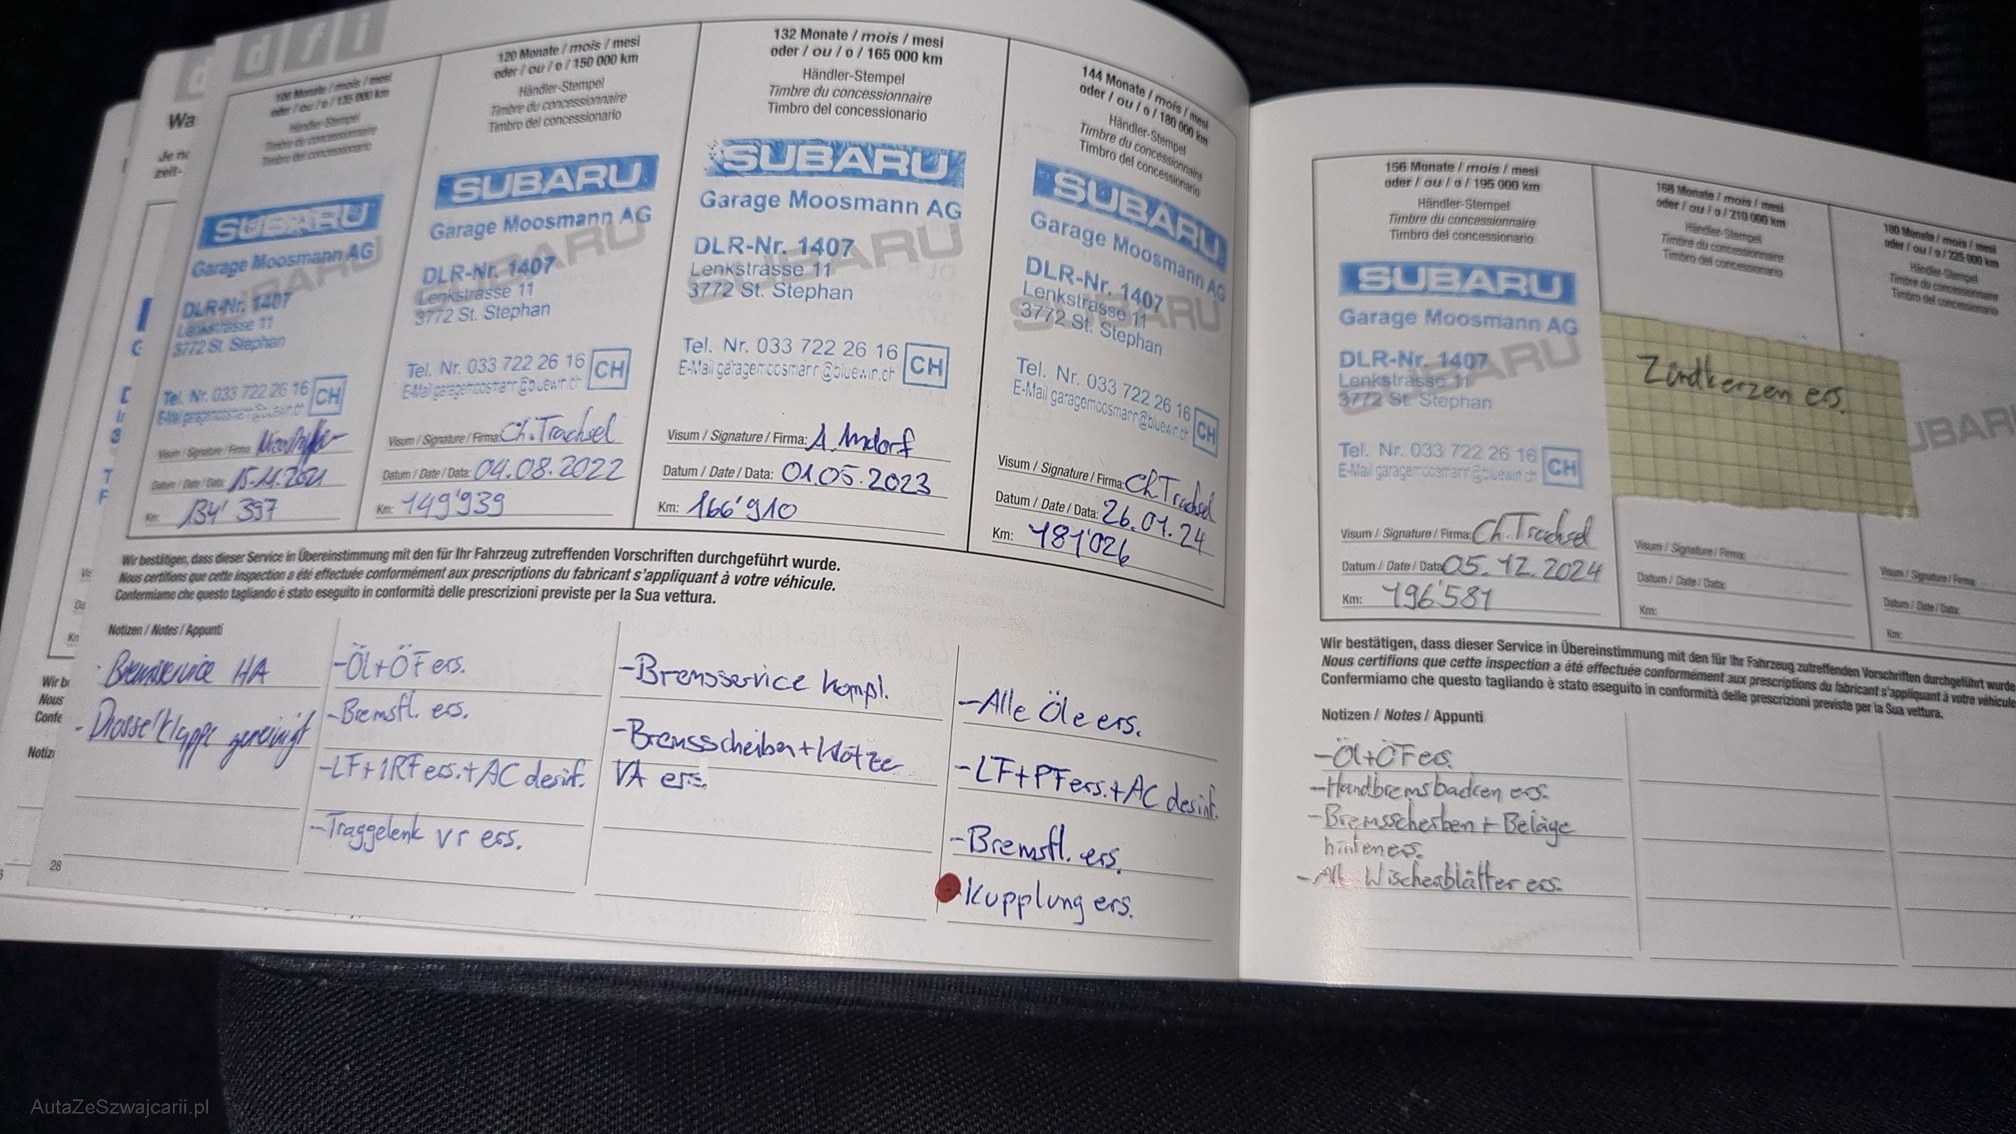 dfi
Wa
108 Monate / mois / mesi
oder / ou / o / 135 000 km
Händler-Stempel
Timbre du concessionnaire
Timbro del concessionario
SUBARU
Garage Moosmann AG
DLR-Nr. 1407
Lenkstrasse 11
3772 St. Stephan
Tel. Nr. 033 722 26 16 CH
E-Mail garagemoosmann@bluewin.ch
Visum / Signature / Firma:
Datum / Date / Data: 15.11.2021
Km: 134'397
120 Monate / mois / mesi
oder / ou / o / 150 000 km
Händler-Stempel
Timbre du concessionnaire
Timbro del concessionario
SUBARU
Garage Moosmann AG
DLR-Nr. 1407
Lenkstrasse 11
3772 St. Stephan
Tel. Nr. 033 722 26 16 CH
E-Mail garagemoosmann@bluewin.ch
Visum / Signature / Firma: Ch. Trachsel
Datum / Date / Data: 04.08.2022
Km: 149'939
132 Monate / mois / mesi
oder / ou / o / 165 000 km
Händler-Stempel
Timbre du concessionnaire
Timbro del concessionario
SUBARU
Garage Moosmann AG
DLR-Nr. 1407
Lenkstrasse 11
3772 St. Stephan
Tel. Nr. 033 722 26 16 CH
E-Mail garagemoosmann@bluewin.ch
Visum / Signature / Firma: A. Amdorf
Datum / Date / Data: 01.05.2023
Km: 166'910
144 Monate / mois / mesi
oder / ou / o / 180 000 km
Händler-Stempel
Timbre du concessionnaire
Timbro del concessionario
SUBARU
Garage Moosmann AG
DLR-Nr. 1407
Lenkstrasse 11
3772 St. Stephan
Tel. Nr. 033 722 26 16 CH
E-Mail garagemoosmann@bluewin.ch
Visum / Signature / Firma: Ch. Trachsel
Datum / Date / Data: 26.01.24
Km: 181'026
Wir bestätigen, dass dieser Service in Übereinstimmung mit den für Ihr Fahrzeug zutreffenden Vorschriften durchgeführt wurde.
Nous certifions que cette inspection a été effectuée conformément aux prescriptions du fabricant s'appliquant à votre véhicule.
Confermiamo che questo tagliando è stato eseguito in conformità delle prescrizioni previste per la Sua vettura.
Notizen / Notes / Appunti
- Bremsservice HA
- Drosselklappe gereinigt
- Öl+ÖF ers.
- Bremsfl. ers.
- LF+IRF ers.+AC desinf.
- Traggelenk vr ers.
- Bremsservice kompl.
- Bremsscheiben + Klötze
VA ers.
- Alle Öle ers.
- LF+PF ers.+AC desinf.
- Bremsfl. ers.
- Kupplung ers.
28
156 Monate / mois / mesi
oder / ou / o / 195 000 km
Händler-Stempel
Timbre du concessionnaire
Timbro del concessionario
SUBARU
Garage Moosmann AG
DLR-Nr. 1407
Lenkstrasse 11
3772 St. Stephan
Tel. Nr. 033 722 26 16 CH
E-Mail garagemoosmann@bluewin.ch
Visum / Signature / Firma: Ch. Trachsel
Datum / Date / Data: 05.12.2024
Km: 196'581
168 Monate / mois / mesi
oder / ou / o / 210 000 km
Händler-Stempel
Timbre du concessionnaire
Timbro del concessionario
Zündkerzen ers.
Visum / Signature / Firma:
Datum / Date / Data:
Km:
180 Monate / mois / mesi
oder / ou / o / 225 000 km
Händler-Stempel
Timbre du concessionnaire
Timbro del concessionario
Visum / Signature / Firma:
Datum / Date / Data:
Km:
Wir bestätigen, dass dieser Service in Übereinstimmung mit den für Ihr Fahrzeug zutreffenden Vorschriften durchgeführt wurde
Nous certifions que cette inspection a été effectuée conformément aux prescriptions du fabricant s'appliquant à votre véhicule
Confermiamo che questo tagliando è stato eseguito in conformità delle prescrizioni previste per la Sua vettura.
Notizen / Notes / Appunti
- Öl+ÖF ers.
- Handbremsbacken ers.
- Bremsscheiben + Beläge
hinten ers.
- Alle Wischerblätter ers.
AutaZeSzwajcarii.pl